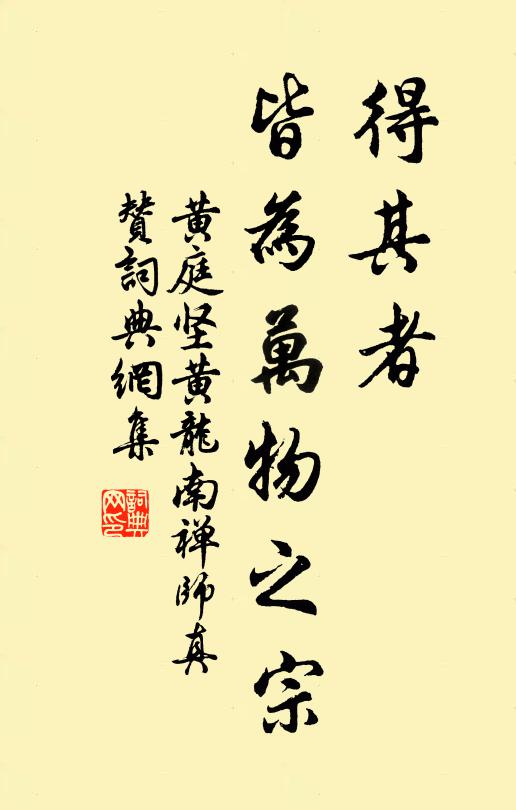 得其者
皆為萬物之宗
黄庭坚黄龍南禅師真
賛詞典網集
詞典
网印